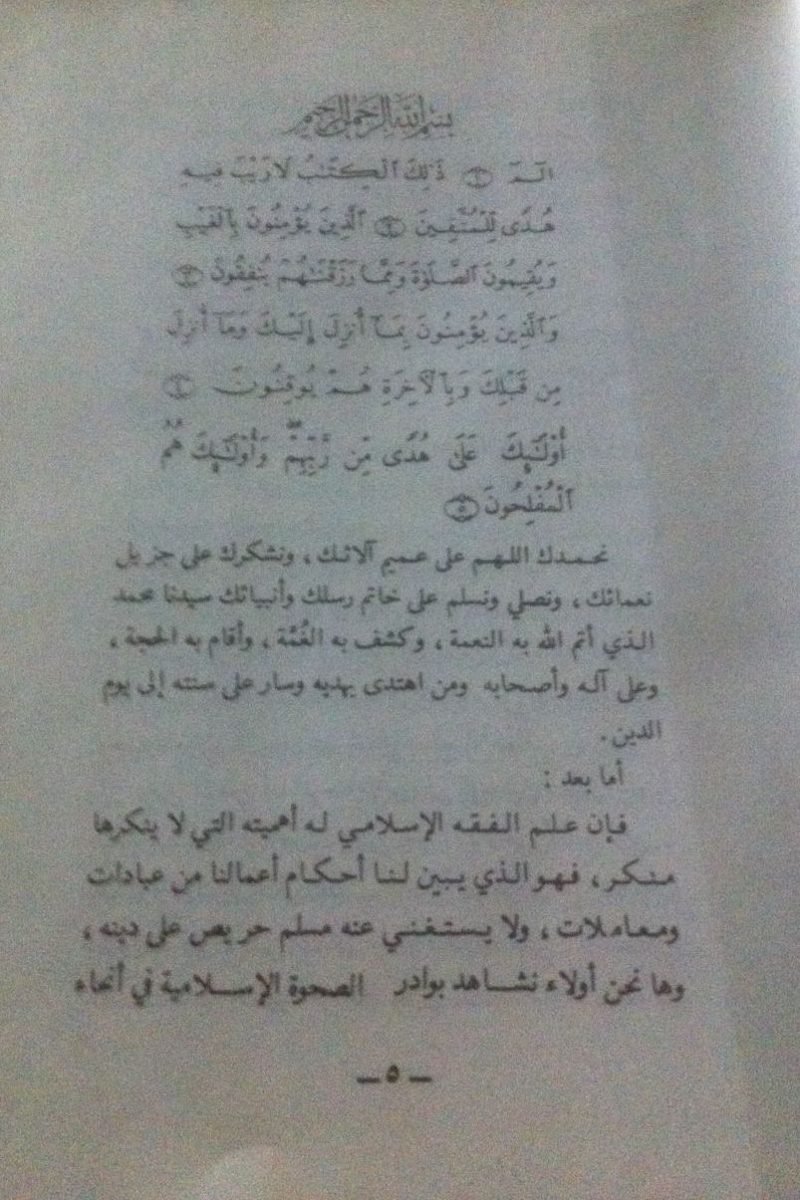 بِسْمِ اللَّهِ الرَّحْمَٰنِ الرَّحِيمِ
الٓمٓ ١ ذَٰلِكَ ٱلْكِتَٰبُ لَا رَيْبَ فِيهِ
هُدًى لِّلْمُتَّقِينَ ٢ ٱلَّذِينَ يُؤْمِنُونَ بِٱلْغَيْبِ
وَيُقِيمُونَ ٱلصَّلَوٰةَ وَمِمَّا رَزَقْنَٰهُمْ يُنفِقُونَ ٣
وَٱلَّذِينَ يُؤْمِنُونَ بِمَآ أُنزِلَ إِلَيْكَ وَمَآ أُنزِلَ
مِن قَبْلِكَ وَبِٱلْأَخِرَةِ هُمْ يُوقِنُونَ ٤
أُوْلَٰٓئِكَ عَلَىٰ هُدًى مِّن رَّبِّهِمْ ۖ وَأُوْلَٰٓئِكَ هُمُ
ٱلْمُفْلِحُونَ ٥
نحمدك اللهم على عميم آلائك ، ونشكرك على جزيل
نعمائك ، ونصلي ونسلم على خاتم رسلك وأنبيائك سيدنا محمد
الذي أتم الله به النعمة ، وكشف به الغُمَّة ، وأقام به الحجة ،
وعلى آله وأصحابه ومن اهتدى بهديه وسار على سنته إلى يوم
الدين .
أما بعد :
فإن علم الفقه الإسلامي له أهميته التي لا ينكرها
منكر ، فهو الذي يبين لنا أحكام أعمالنا من عبادات
ومعاملات ، ولا يستغني عنه مسلم حريص على دينه ،
وها نحن أولاء نشاهد بوادر الصحوة الإسلامية في أنحاء
ــ ٥ ــ